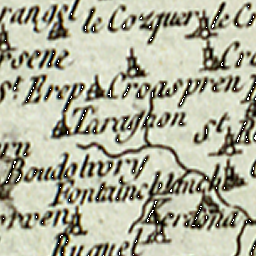 rangel le Cozquer le C
rsene Cro
St Brep Croaspren
Taragnon St
rn
Boudolivry
Fontaineblanche
rven Kerdona
Ruguel